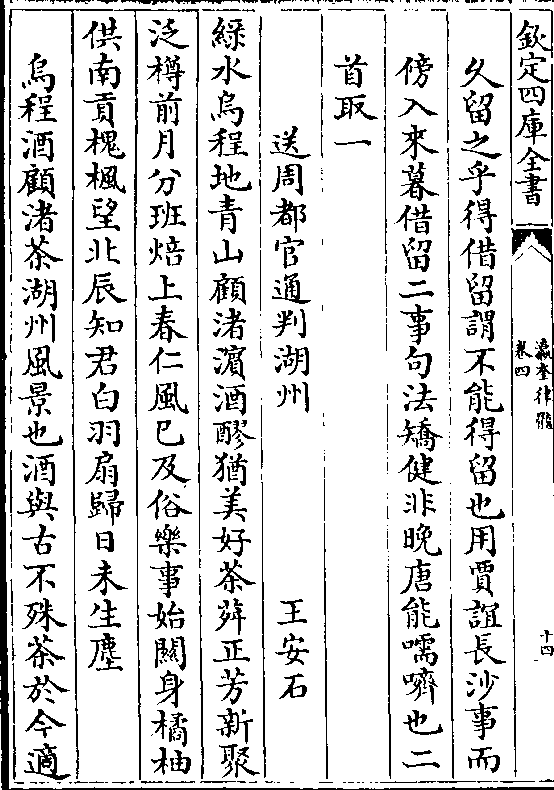 欽定四庫全書
瀛奎律髓
卷四
十四
久留之乎得借留謂不能得留也用賈誼長沙事而
傍入來暮借留二事句法矯健非晚唐能嚅嚌也二
首取一
送周都官通判湖州 王安石
綠水烏程地青山顧渚濵酒醪猶美好茶荈正芳新聚
泛樽前月分班焙上春仁風已及俗樂事始闗身橘柚
供南貢槐楓望北辰知君白羽扇歸日未生塵
烏程酒顧渚茶湖州風景也酒與古不殊茶於今適